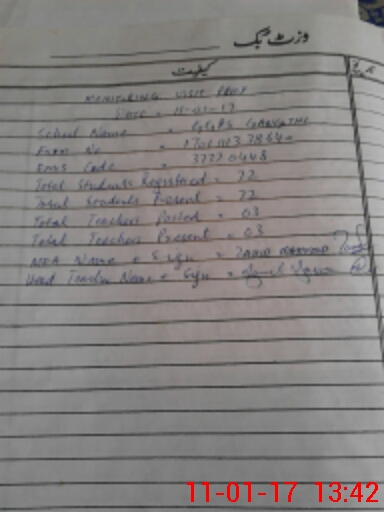 وزٹ بک
کیفیت
MONITORING VISIT PROF
Date = 11-01-17
School Name = GGPS
Form No =
EMIS Code = 37220448
Total Students Registered = 72
Total Students Present = 72
Total Teachers Posted = 03
Total Teachers Present = 03
MEA Name + Sign = ZAHID MAHMOOD
Head Teacher Name + Sign =
11-01-17 13:42